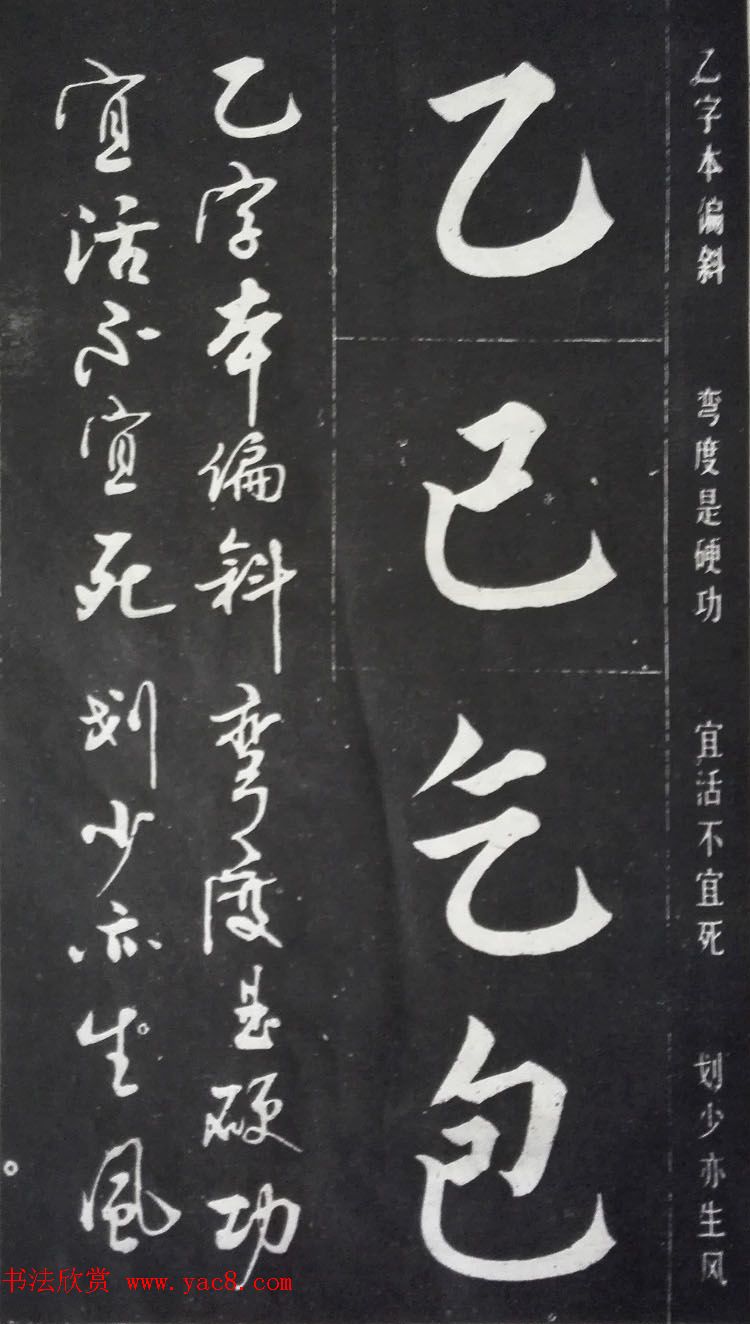 乙字本偏斜 弯度是硬功 宜活不宜死 划少亦生风
乙
已
乞
包
乙字本偏斜弯度是硬功
宜活不宜死划少亦生风
书法欣赏 www.yac8.com